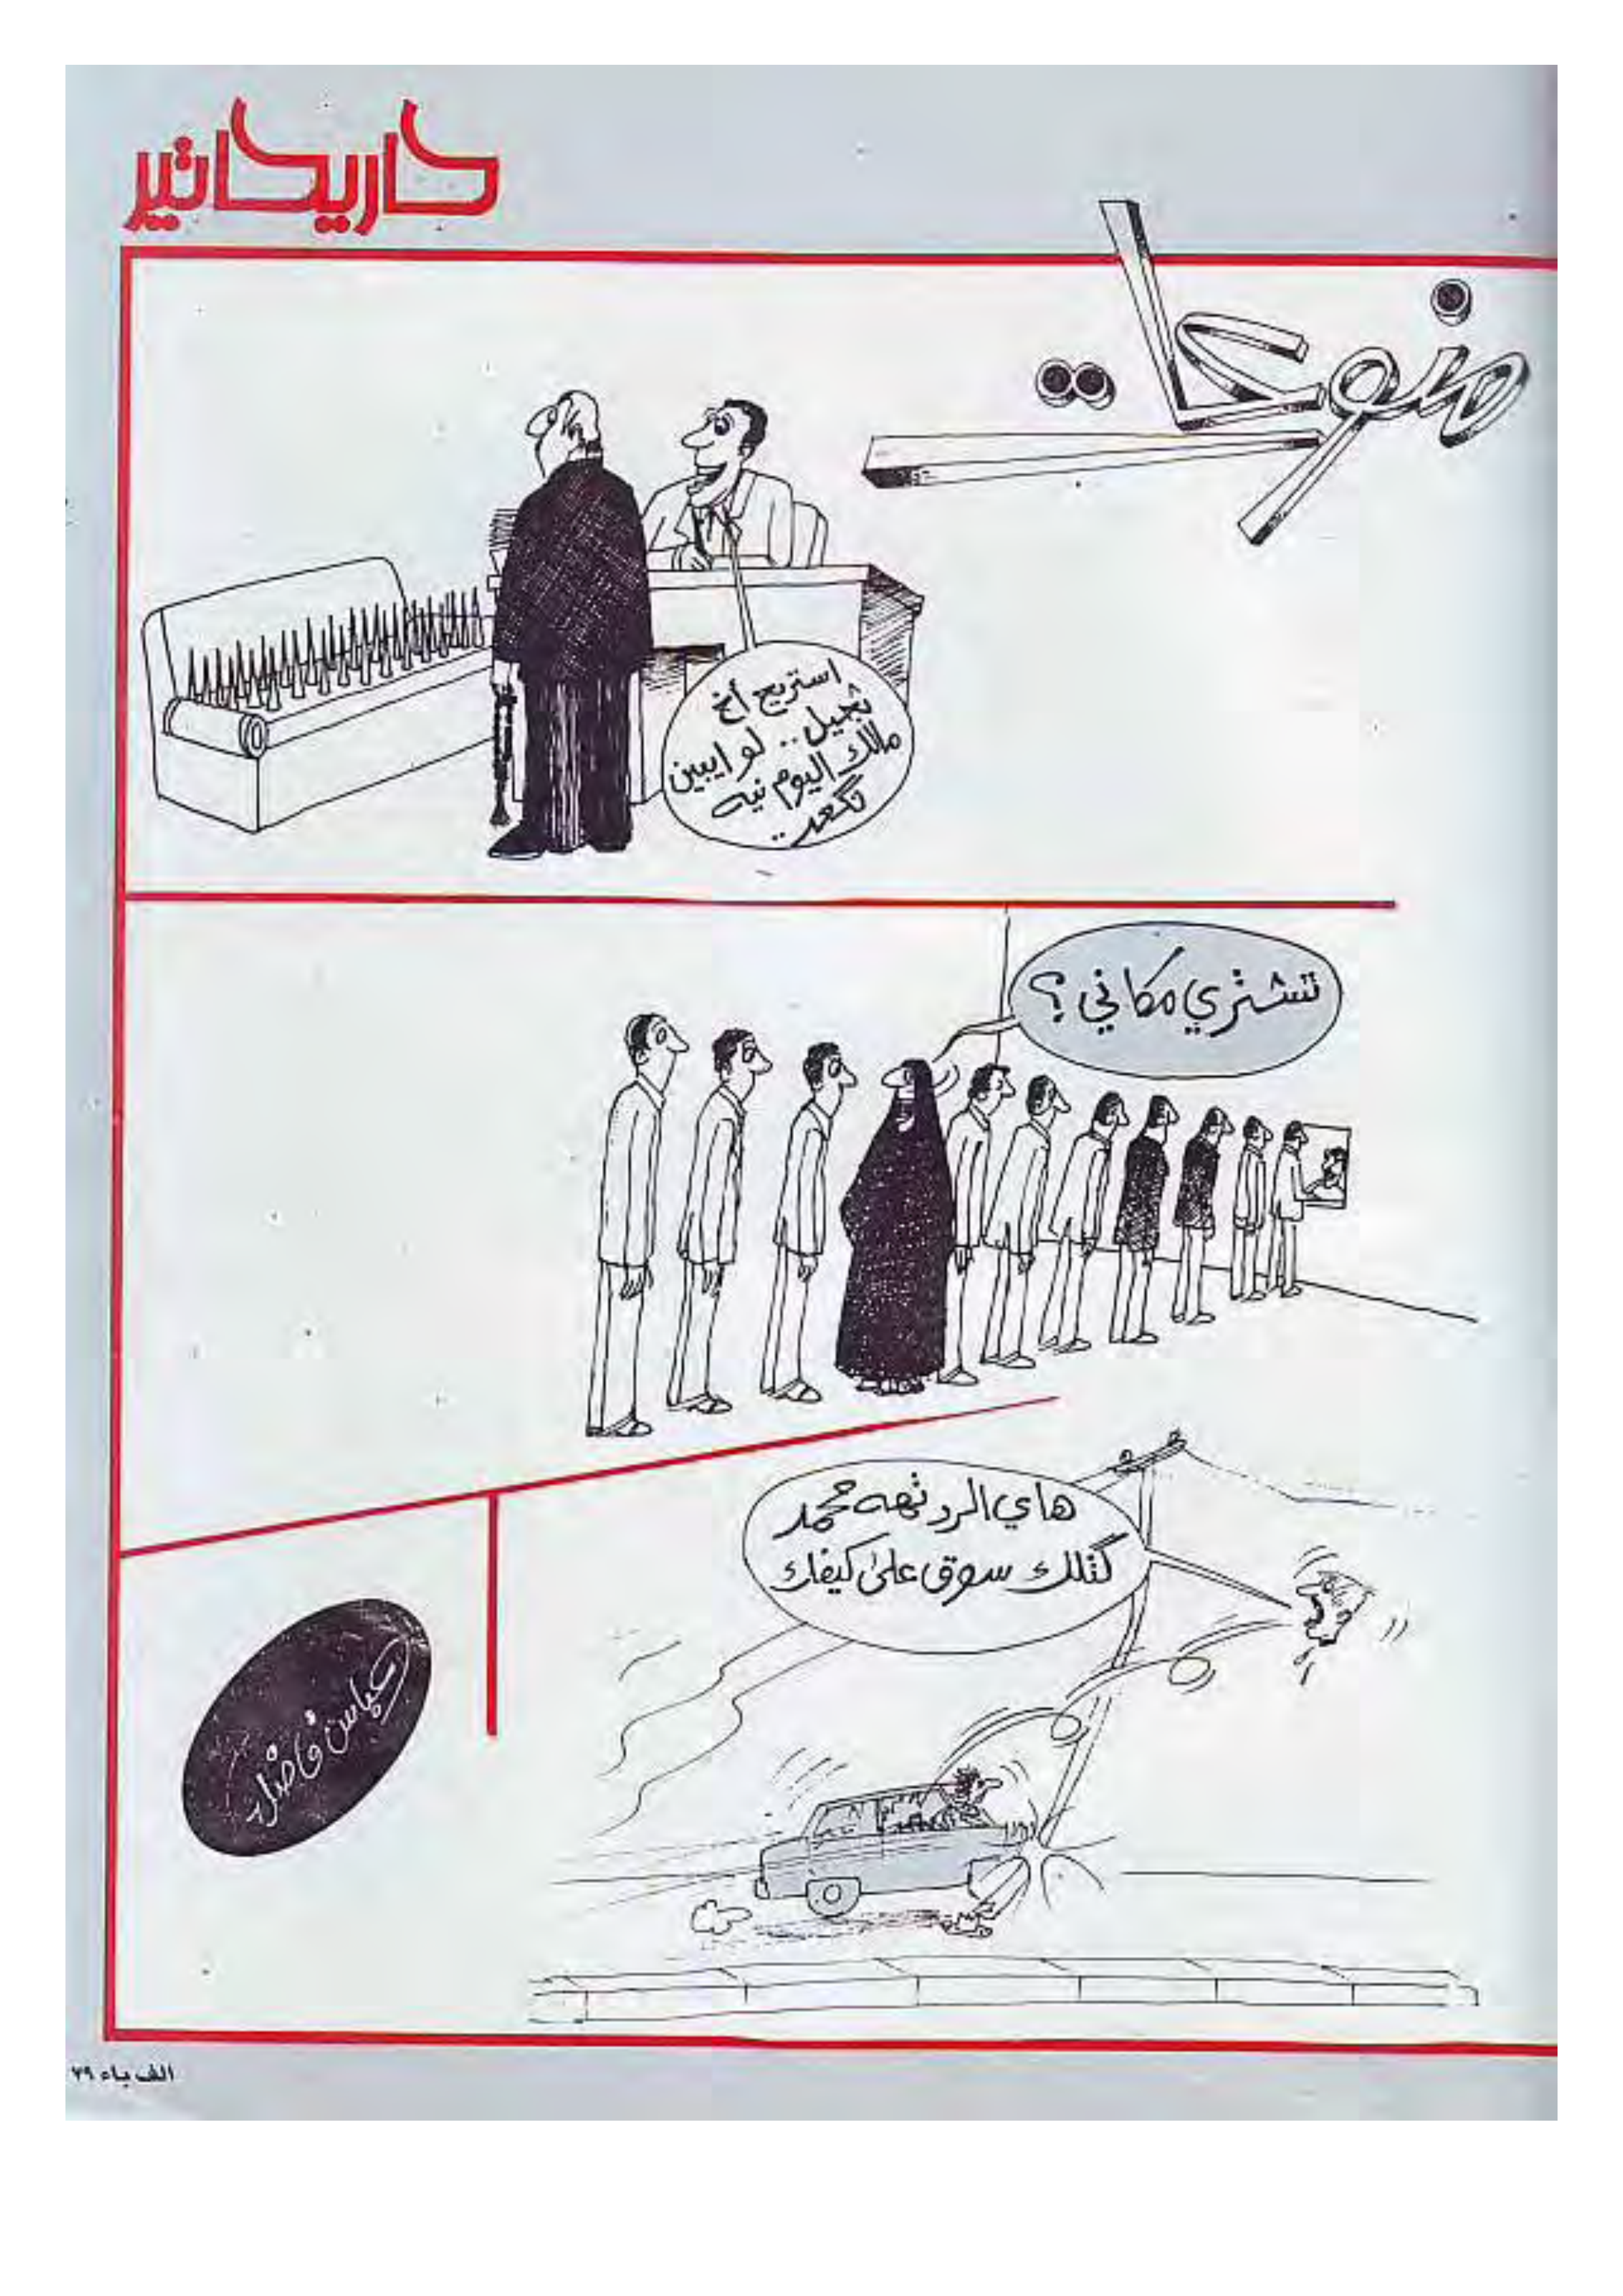 كاريكاتير
منوكات
استريح أخ
ثجيل.. لو ايبين
مالك اليوم نيه
تگعد..
تشتري مكاني؟
هاي الردتهه محمد
گتلك سوق على كيفك
عباس فاضل
الف باء ٣٩